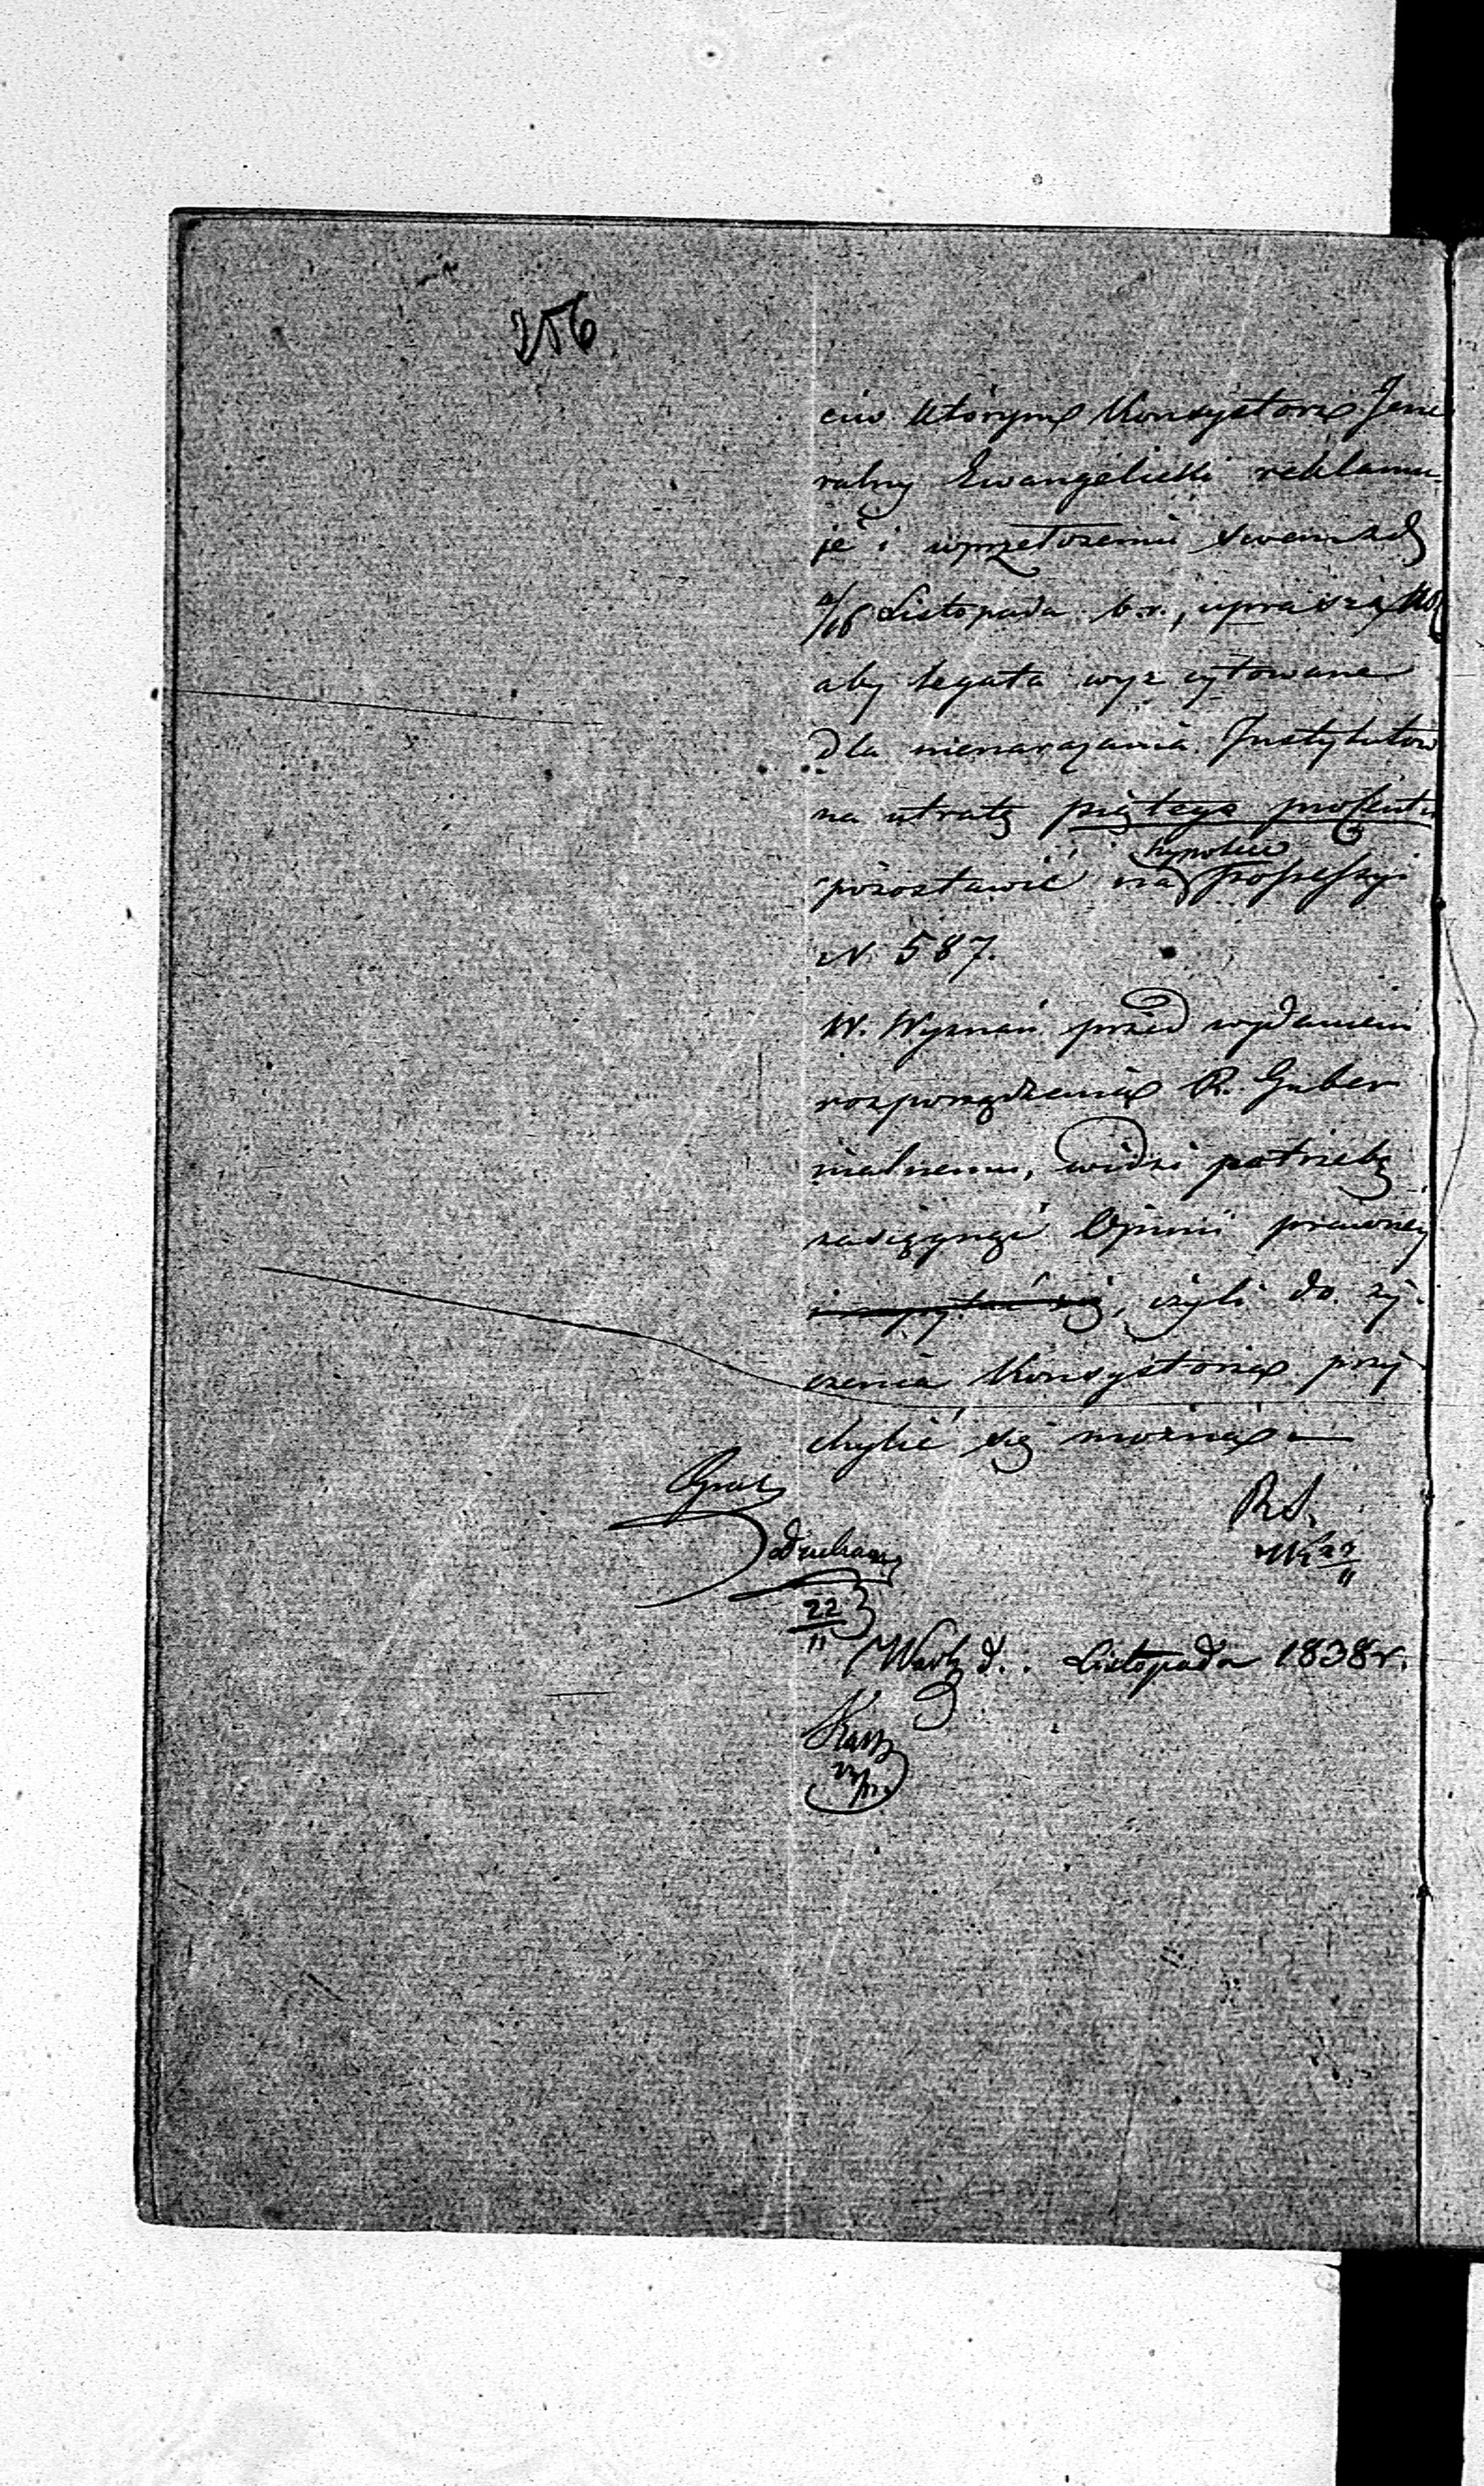 256
ciw którym Konsystorz Jene
ralny Ewangelicki reklamu-
je i w przełożeniu swem z d.
4/16 Listopada b.r., uprasza
aby legata wyż cytowane
dla nienarażania Instytutów
na utratę piątego procentu
hypotece
pozostawić na possessyi
N. 587.
W. Wyznań przed wydaniem
rozporządzenia R. Guber
nialnemu, widzi potrzebę
zasięgnąć Opinii prawnej
i zapytać się, czyli do ży-
czenia Konsystorza przy
chylić się można
22/11
R.S.
22/11
Warsz d. . Listopada 1838 r.